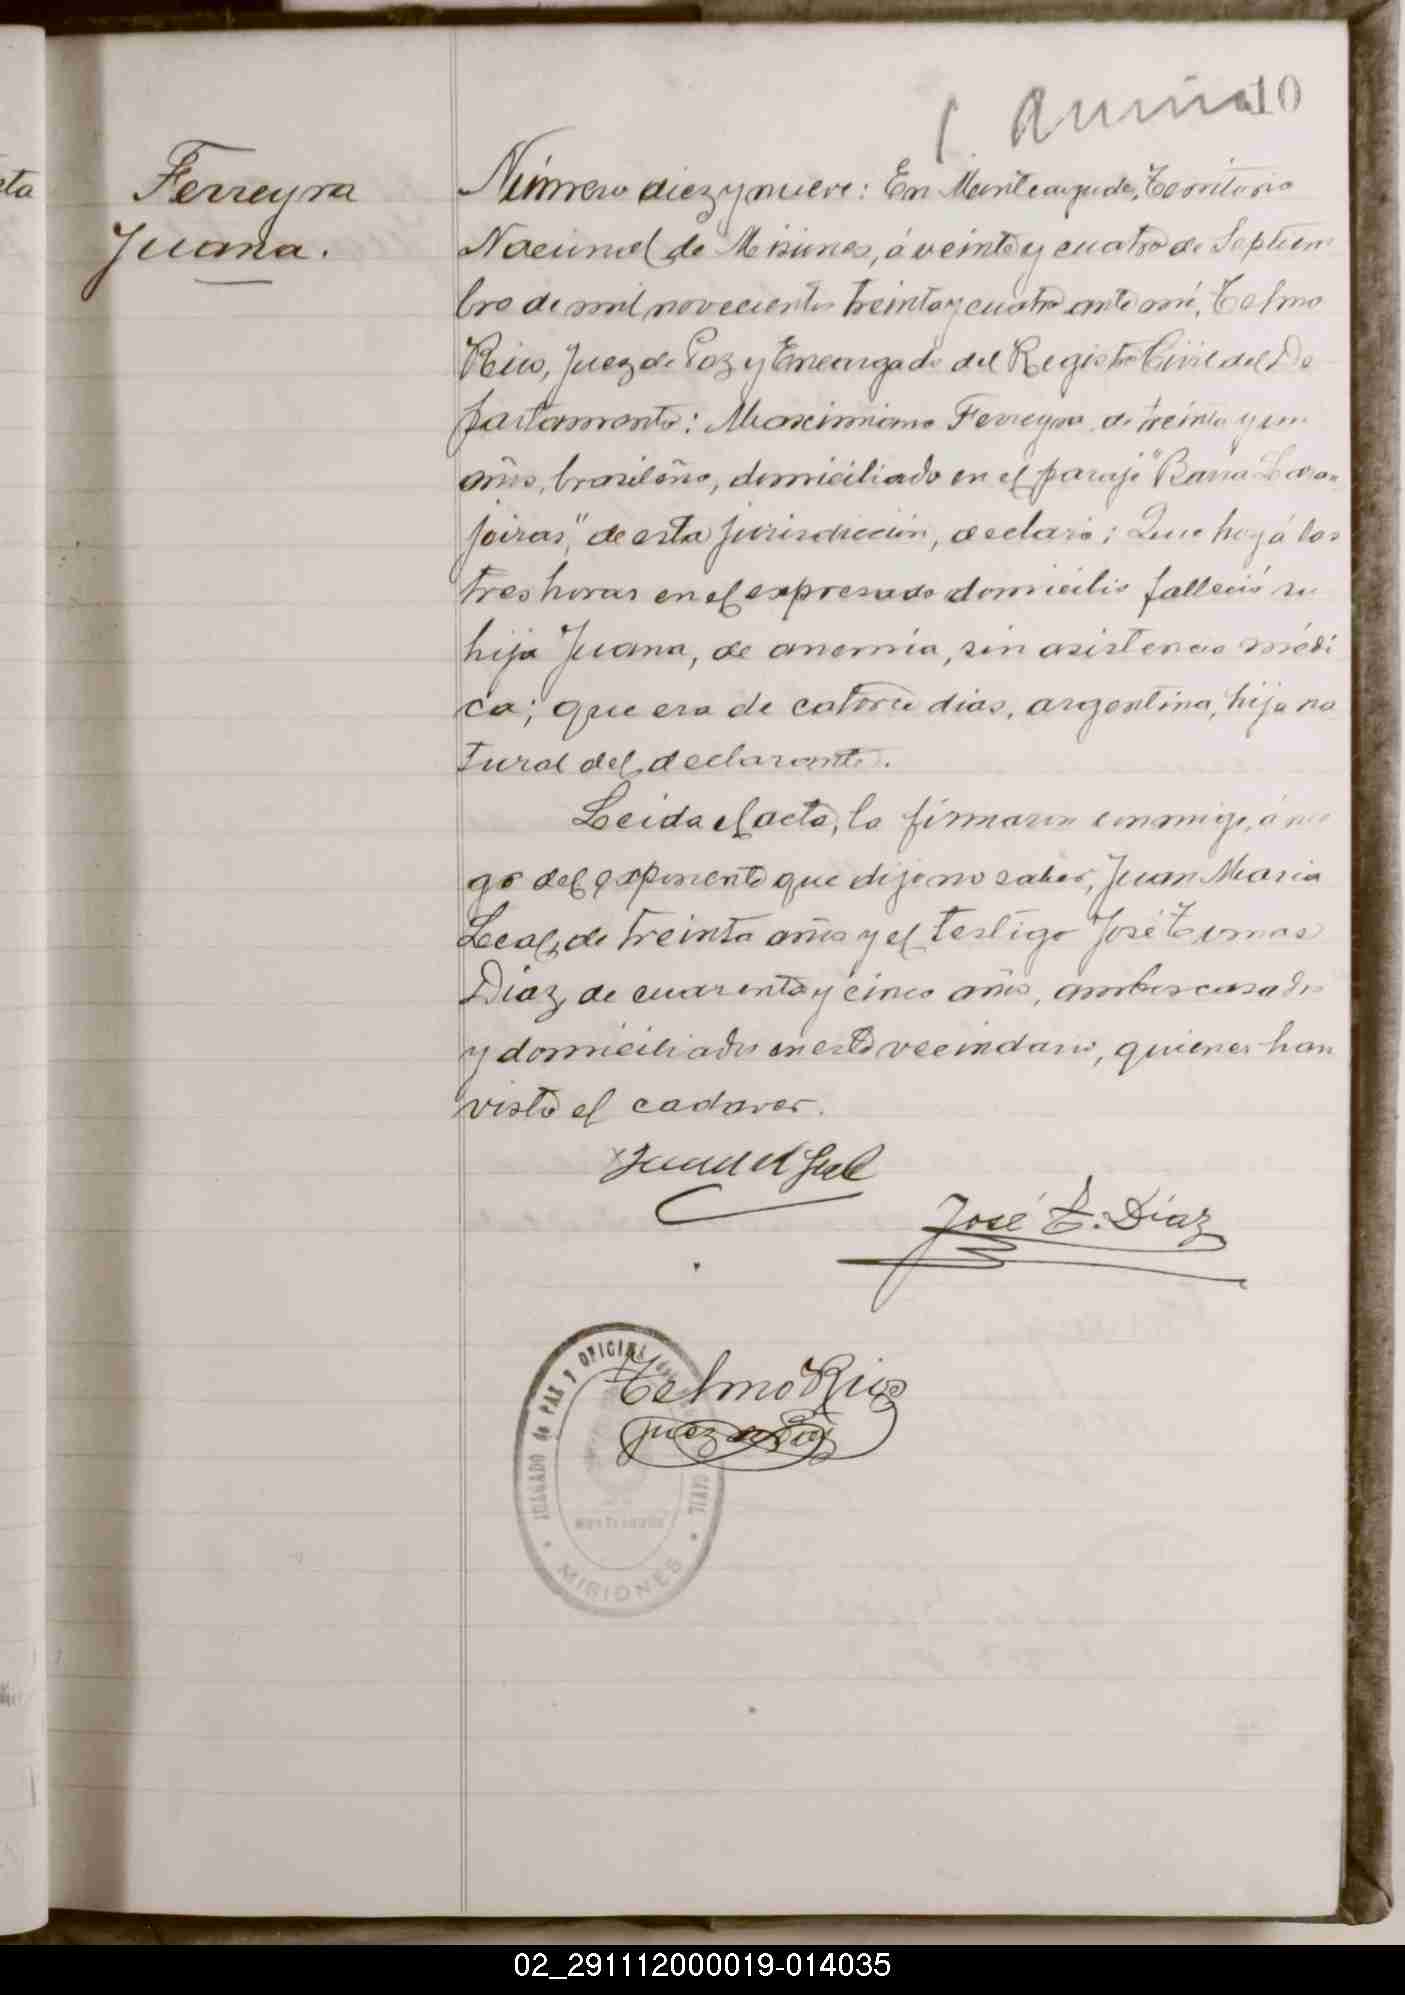 10
Ferreyra
Juana.
Número diez y nueve: En Monteagudo, Territorio
Nacional de Misiones, á veinte y cuatro de Septiem
bre de mil novecientos treinta y cuatro ante mí, Telmo
Rios, Juez de Paz y Encargado del Registro Civil del De
partamento: Maximiano Ferreyra, de treinta y un
años, brasileño, domiciliado en el paraje "Barra Laran
jeiras," de esta jurisdicción, declaró: Que hoy á las
tres horas en el expresado domicilio falleció su
hija Juana, de anemia, sin asistencia médi
ca; que era de catorce dias, argentina, hija na
tural del declarante.
Leida el acta, la firmaron conmigo, á rue
go del exponente que dijo no saber, Juan Maria
Leal, de treinta años y el testigo José Tomas
Diaz, de cuarenta y cinco años, ambos casados
y domiciliados en este vecindario, quienes han
visto el cadaver.
Juan M Leal
José T. Díaz
Telmo Rios
Juez de Paz
JUZGADO de PAZ y OFICINA
CIVIL
MISIONES
02_291112000019-014035